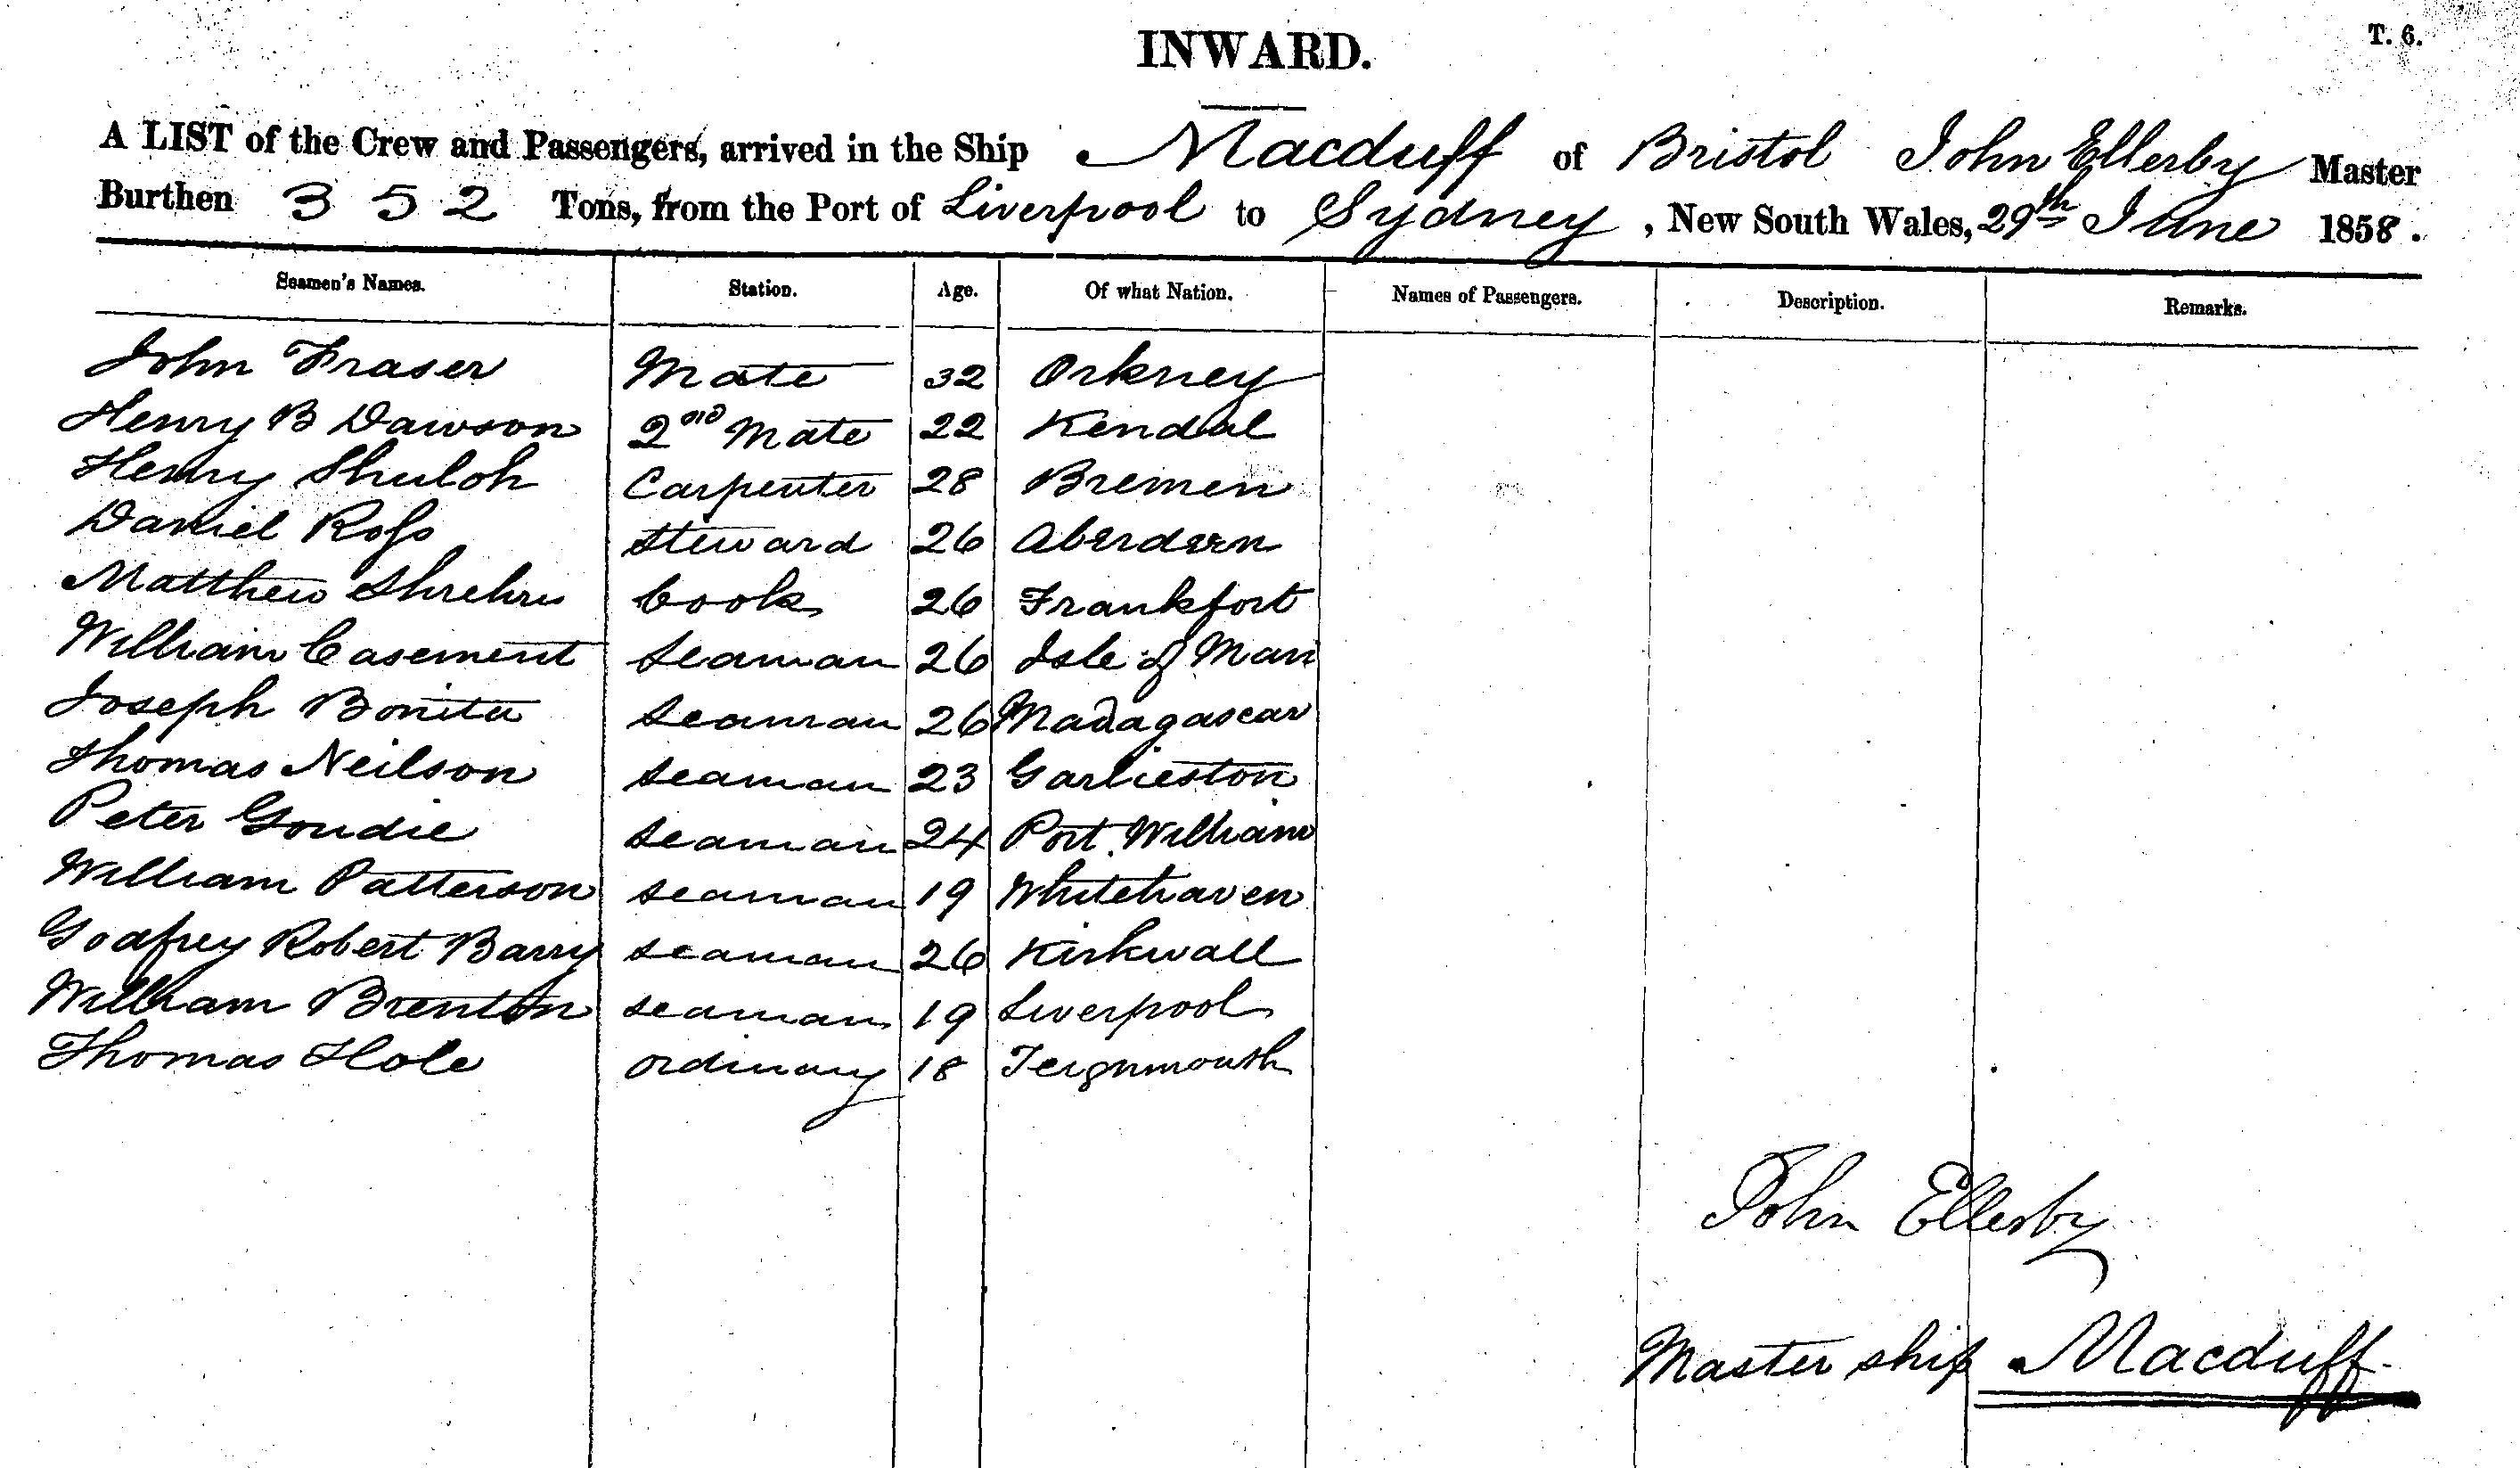 T. 6.
INWARD.
A LIST of the Crew and Passengers, arrived in the Ship Macduff of Bristol John Ellerby Master
Burthen 352 Tons, from the Port of Liverpool to Sydney, New South Wales, 29th June 1858.
Seamen's Names. Station. Age. Of what Nation. Names of Passengers. Description. Remarks.
John Fraser Mate 32 Orkney
Henry B Dawson 2nd Mate 22 Kendal
Henry Carpenter 28 Bremen
Daniel Ross Steward 26 Aberdeen
Matthew Cook 26 Frankfort
William Casement Seaman 26 Isle of Man
Joseph Seaman 26 Madagascar
Thomas Neilson Seaman 23 Garlieston
Peter Goudie Seaman 24 Port William
William Patterson Seaman 19 Whitehaven
Godfrey Robert Barry Seaman 26 Kirkwall
William Brenton Seaman 19 Liverpool
Thomas Hole Ordinary 18 Teignmouth
John Ellerby
Master ship Macduff